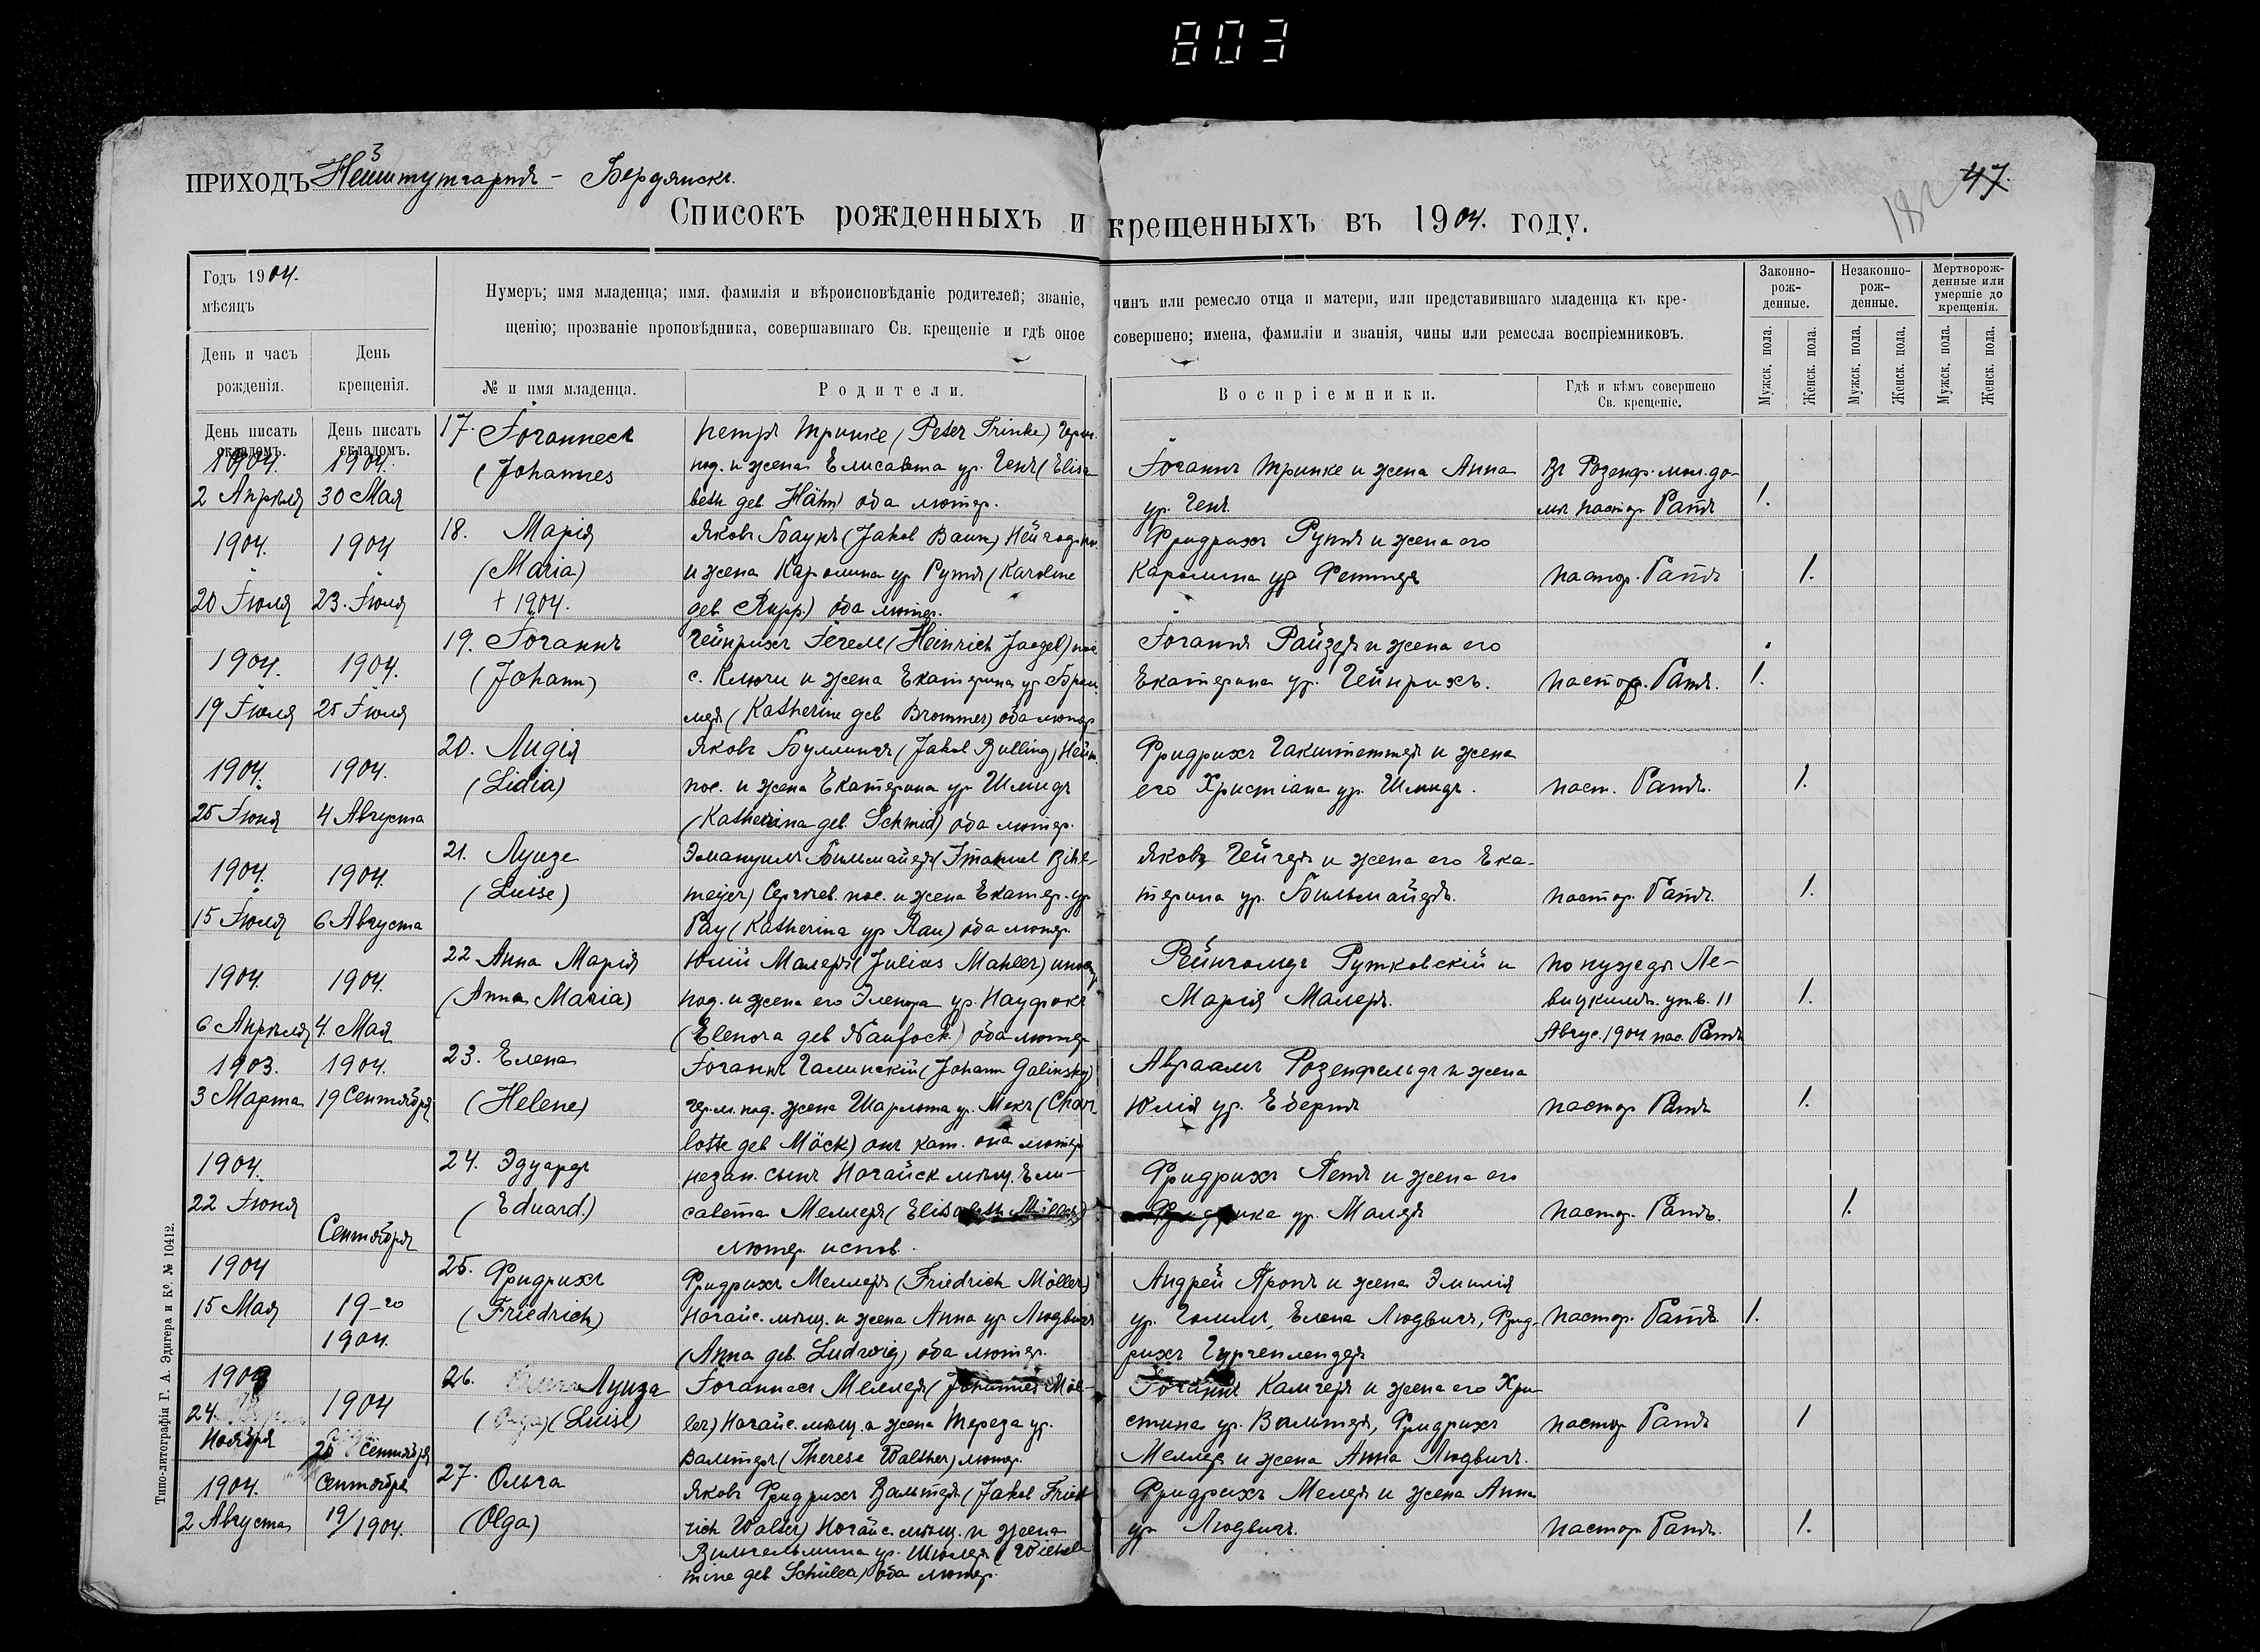 803
47.
182
ПРИХОДЪ Нейштутгартъ - Бердянскъ.
Списокъ рожденныхъ и крещенныхъ въ 1904. году.
Годъ 1904.
мѣсяцъ
День и часъ
рожденія.
День
крещенія.
Нумеръ; имя младенца; имя, фамилія и вѣроисповѣданіе родителей; званіе, чинъ или ремесло отца и матери, или представившаго младенца къ кре-
щенію; прозваніе проповѣдника, совершавшаго Св. крещеніе и гдѣ оное совершено; имена, фамиліи и званія, чины или ремесла воспріемниковъ.
№ и имя младенца.
Родители.
Воспріемники.
Гдѣ и кѣмъ совершено
Св. крещеніе.
Законно-
рож-
денные.
Незаконно-
рож-
денные.
Мертворож-
денные или
умершіе до
крещенія.
Мужск. пола.
Женск. пола.
Мужск. пола.
Женск. пола.
Мужск. пола.
Женск. пола.
День писать
складомъ.
День писать
складомъ.
1904.
2 Апрѣля
1904.
30 Мая
17. Іоганнесъ
(Johannes
Петръ Тринке (Peter Trinke) Герм.
под. и жена Елисавета ур. Генъ (Elisa-
beth geb. Hähn) оба лютер.
Іоганнъ Тринке и жена Анна
ур. Генъ
Въ Розенф. мол. до-
мѣ пастор Ратъ
1.
1904.
20 Іюля
1904
23. Іюля
18. Марія
(Maria)
† 1904.
Яковъ Баукъ (Jakob Bauk)
и жена Каролина ур Руппъ (Karoline
geb Rupp.) оба лютер.
Фридрихъ Руппъ и жена его
Каролина ур
пастор. Ратъ
1.
1904.
19 Іюля
1904.
25 Іюля
19. Іоганнъ
(Johann)
Гейнрихъ Іегель (Heinrich Jaegel) пос
с. Ключи и жена Екатерина ур Бром-
меръ (Katherine geb Brommer) оба лютер
Іоганнъ Райзеръ и жена его
Екатерина ур. Гейнрихъ.
пастор. Ратъ.
1.
1904.
25 Іюня
1904.
4 Августа
20. Лидія
(Lidia)
Яковъ Буллингъ (Jakob Bulling) Нейш.
пос. и жена Екатерина ур Шмидъ
(Katherina geb. Schmid) оба лютер.
Фридрихъ Гакштеттеръ и жена
его Христіана ур. Шмидъ.
паст. Ратъ.
1.
1904.
15 Іюля
1904.
6 Августа
21. Луизе
(Luise)
Эмануилъ Бильмайеръ (Imanuel Bihl-
meijer) Сергѣев. пос. и жена Екатер. ур
Рау (Katherina ур Rau) оба лютер.
Яковъ Гейгеръ и жена его Ека-
терина ур. Бильмайеръ.
пастор. Ратъ.
1.
1904.
6 Апрѣля
1904.
4. Мая
22 Анна Марія
(Anna Maria)
Юлій Малеръ (Julius Mahler)
под. и жена его Эленора ур. Науфокъ
(Elenora geb Naufock.) оба лютер
Рейнгольдъ Рутковскій и
Марія Малеръ.
по нуждѣ Ле-
вицкимъ. утв. 11
Авгус. 1904 пас. Ратъ
1.
1903.
3 Марта
1904.
19 Сентября
23. Елена
(Helene)
Іоганнъ Галинскій (Johann Galinsky)
герм. под. жена Шарлота ур. Мекъ (Char
lotte geb Möck) онъ кат. она лютер
Авраамъ Розенфельдъ и жена
Юлія ур. Ебертъ
пастор Ратъ
1.
1904.
22 Іюня
24. Эдуардъ
(Eduard.)
незак. сынъ Ногайск мѣщ. Ели-
савета Меллеръ (Elisabeth Möller)
лютер. испов.
Фридрихъ Петъ и жена его
Фридрика ур. Малеръ
пастор. Ратъ.
1.
Сентября
19-го
1904.
1904
15 Мая
25. Фридрихъ
(Friedrich)
Фридрихъ Меллеръ (Friedrich Möller)
Ногайс. мѣщ. и жена Анна ур Людвигъ
(Anna geb. Ludwig) оба лютер.
Андрей Пропъ и жена Эмилія
ур. Гоммъ, Елена Людвигъ, Фрид-
рихъ
пастор. Ратъ
1.
1903
24
Ноября
1904
26 Сентября
26. Луиза
(Olga) (Luise)
Іоганнесъ Меллеръ (Johannes Möl-
ler) Ногайс. мѣщ. и жена Тереза ур.
Валтеръ (Therese Walther) лютер.
Іоганнъ Калгеръ и жена его Хри-
стина ур. Вальтеръ, Фридрихъ
Меллер и жена Анна Людвигъ.
пастор Ратъ
1
1904.
2 Августа
Сентября
19/1904.
27. Ольга
(Olga)
Яковъ Фридрихъ Вальтеръ (Jakob Fried
rich Walter) Ногайс. мѣщ. и жена
Вильгельмина ур. Шюлеръ (Wilhel-
mine geb Schüler) оба лютер.
Фридрихъ Мелеръ и жена Анна
ур Людвигъ.
пастор Ратъ.
1.
Типо-литографія Г. А. Эдигера и Ко. № 10412.